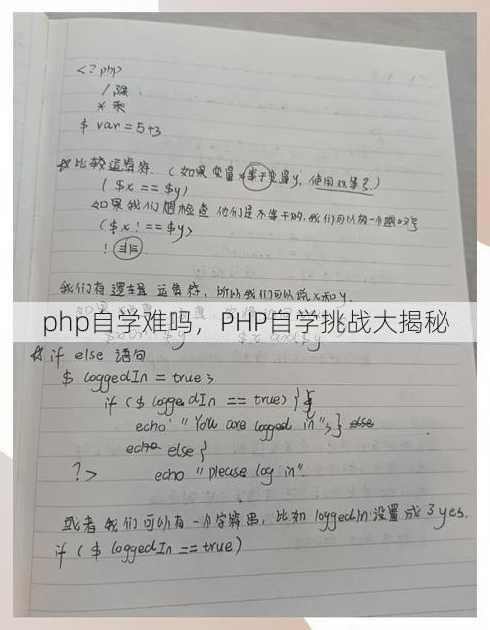 <?php
/ 除
* 乘
$ var = 5+3
比较运算符. (如果变量x等于变量y, 使用双等号.)
( $x == $y)
如果我们想检查他们是不等于的, 我们可以放一个感叹号
($x ! == $y)
! 非
我们有逻辑 运算符, 所以我们可以说 x和y.
php自学难吗，PHP自学挑战大揭秘
if else 语句
$ loggedIn = true;
if ($ loggedIn == true) {
echo "You are logged in"; } else
echo else {
?> echo "please log in"
或者 我们可以有一个字符串, 比如 loggedIn 设置成 3 yes.
if ( $ loggedIn == true)